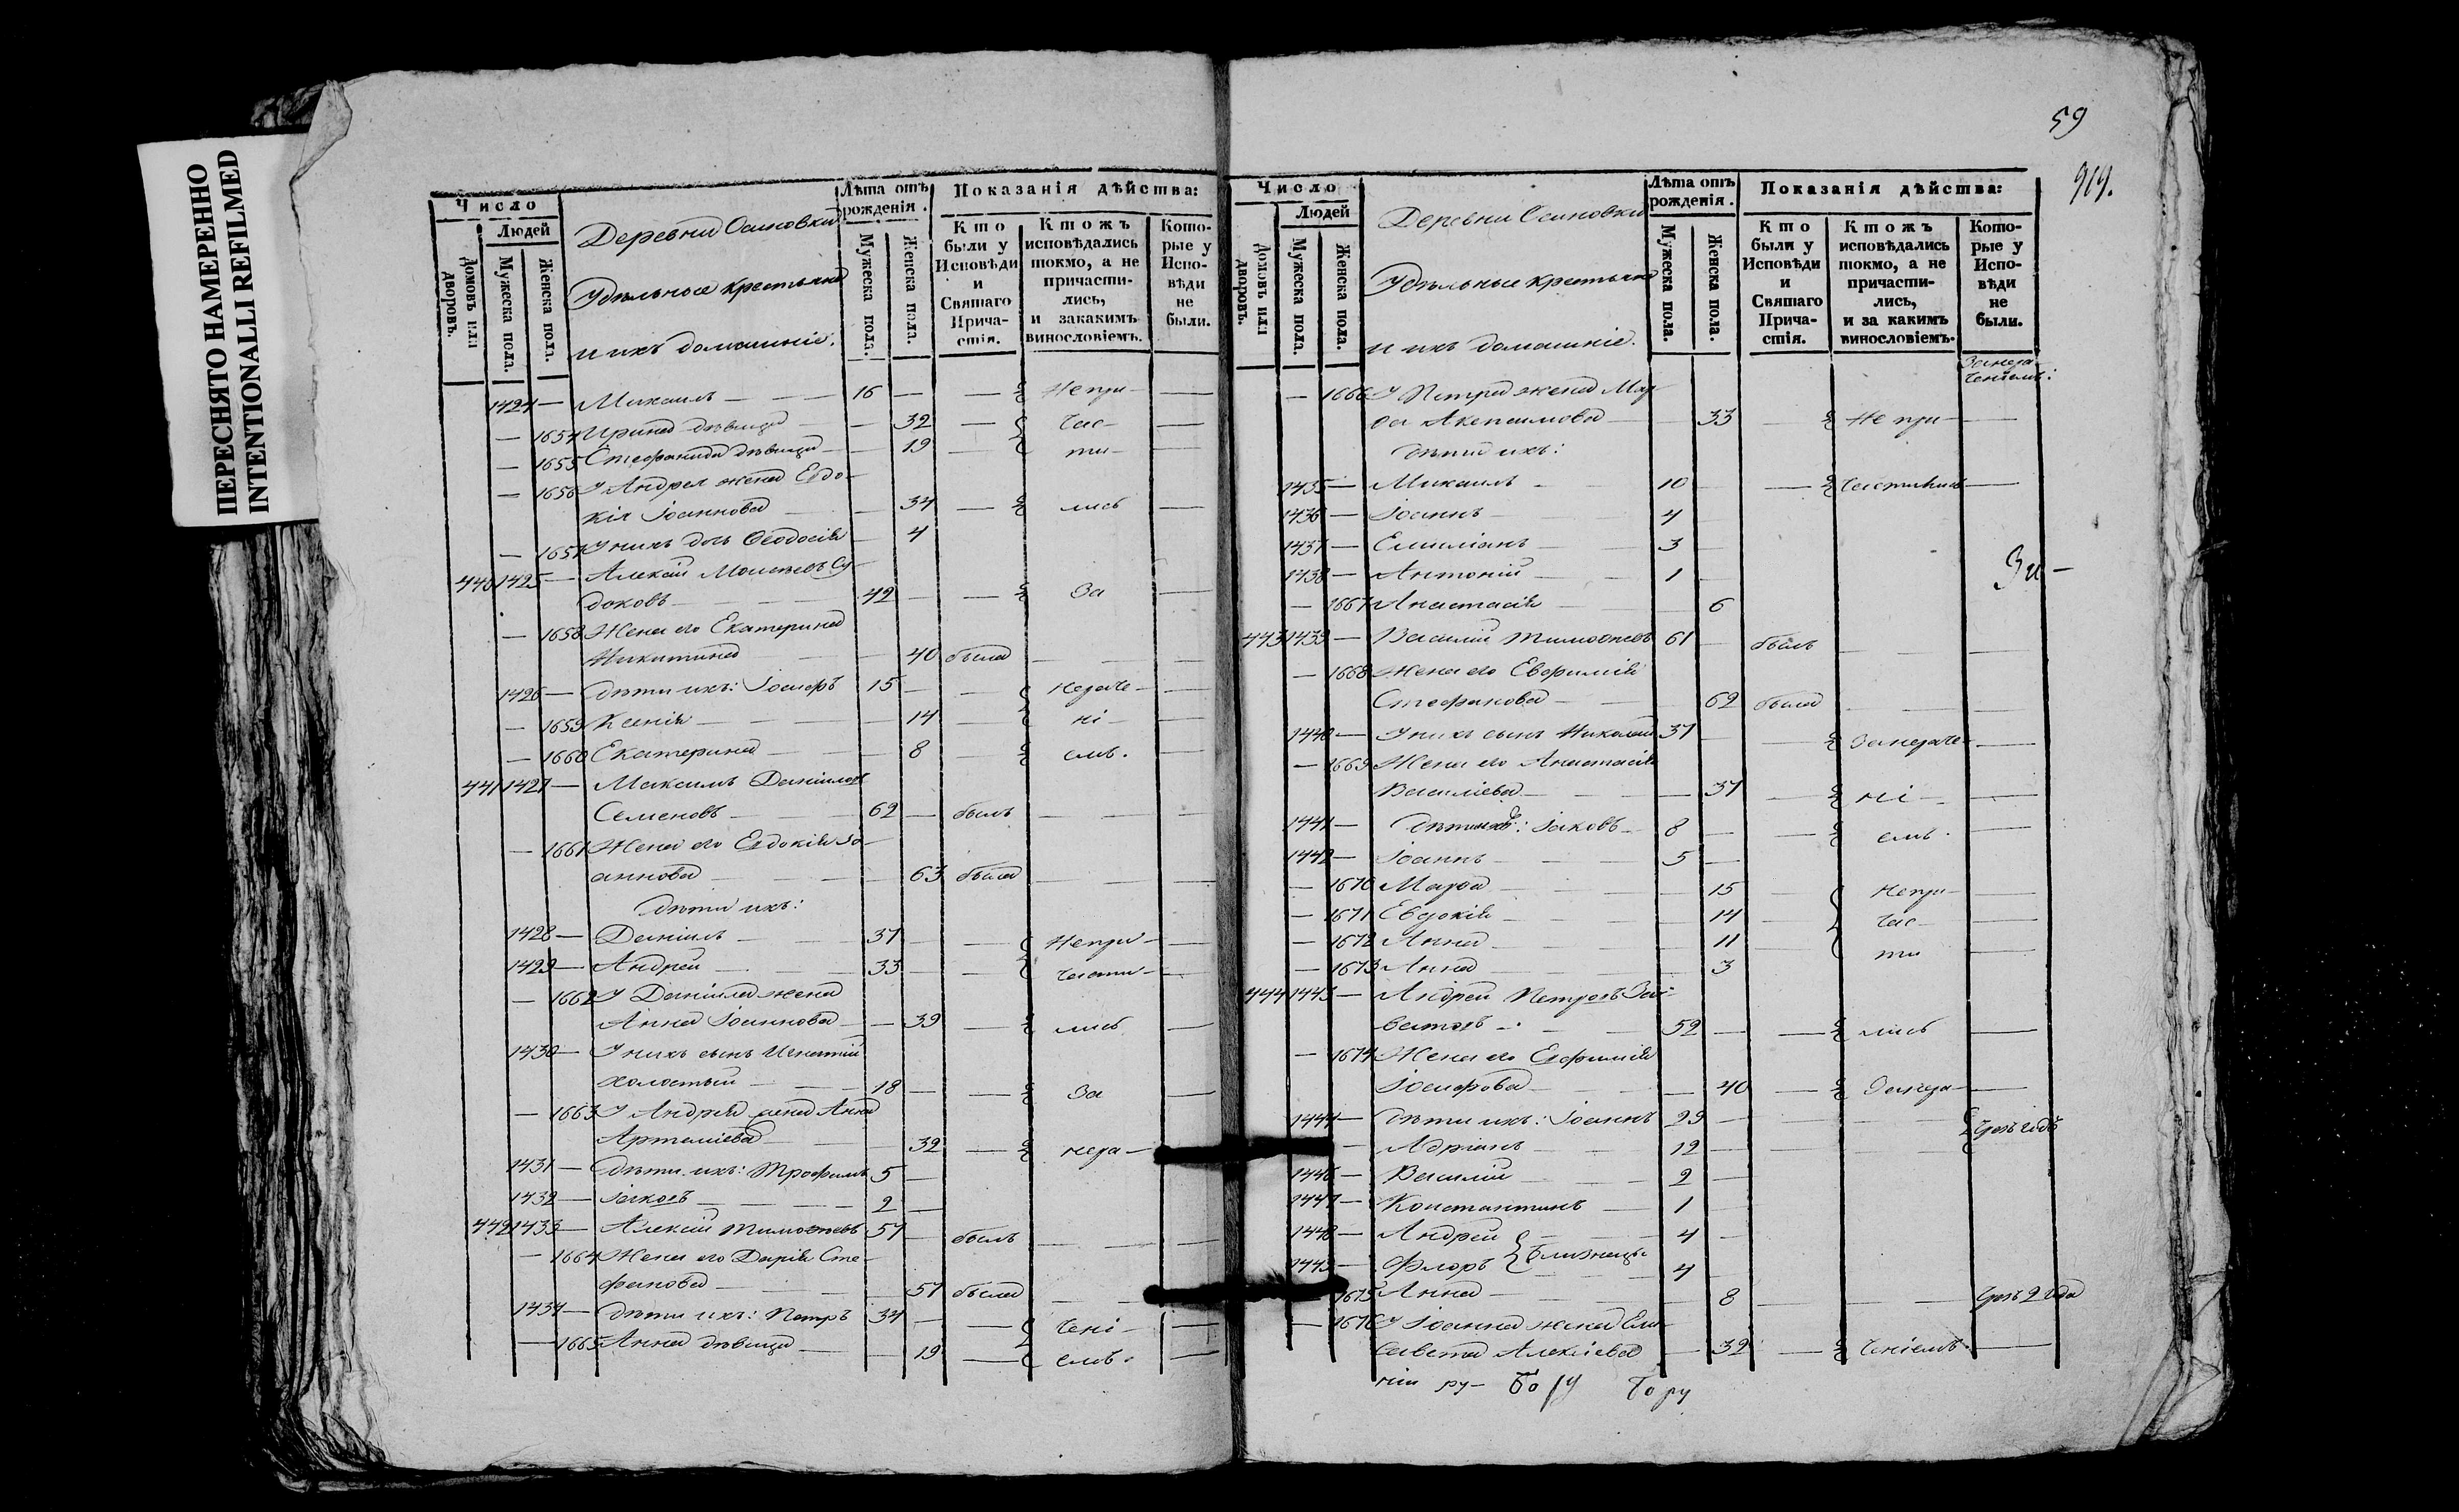 ПЕРЕСНЯТО НАМЕРЕННО
INTENTIONALLI REFILMED
Число
Людей
Домовъ или дворовъ.
Мужеска пола.
Женска пола.
Деревни Осиновки
Удѣльные крестьяне
и ихъ домашніе.
Лѣта отъ рожденія.
Мужеска пола.
Женска пола.
Показанія дѣйства:
Кто были у Исповѣди и Святаго Причастія.
Ктожъ исповѣдались токмо, а не причастились, и закакимъ винословіемъ.
Которые у Исповѣди не были.
1424 — Михаилъ — 16 — — Непри —
— 1654 Ирина дѣвица — 32 — час —
— 1655 Стефанида дѣвица — 19 — ти —
— 1656 У Андрея жена Евдо-
кія Іоаннова — 34 — лись —
— 1657 У нихъ дочь Ѳеодосія — 4
440 1425 — Алексій Моисеевъ
доковъ — 42 — — За —
— 1658 Жена его Екатерина
Никитина — 40 была — —
1426 — Дѣти ихъ: Іосифъ 15 — — нераче- —
— 1659 Ксенія — 14 — ні- —
— 1660 Екатерина — 8 — емъ. —
441 1427 — Максимъ Даніиловъ
Семеновъ — 62 — былъ — —
— 1661 Жена его Евдокія Іо-
аннова — 63 была — —
Дѣти ихъ:
1428 — Даніилъ — 37 — — Непри- —
1429 — Андрей — 33 — — части- —
— 1662 У Даніила жена
Анна Іоаннова — 39 — лись —
1430 — У нихъ сынъ Игнатій
холостый — 18 — — За —
— 1663 У Андрея жена Анна
Артеміева — 32 — нера- —
1431 — Дѣти ихъ: Трофимъ 5 —
1432 — Іаковъ — 2 —
442 1433 — Алексій Тимоѳеевъ 57 — былъ — —
— 1664 Жена его Дарія Сте-
фанова — 57 была — —
1434 — Дѣти ихъ: Петръ 34 — — чені- —
— 1665 Анна дѣвица — 19 — емъ. —
59
919.
Число
Людей
Домовъ или дворовъ.
Мужеска пола.
Женска пола.
Деревни Осиновки
Удѣльные крестьяне
и ихъ домашніе.
Лѣта отъ рожденія.
Мужеска пола.
Женска пола.
Показанія дѣйства:
Кто были у Исповѣди и Святаго Причастія.
Ктожъ исповѣдались токмо, а не причастились, и за какимъ винословіемъ.
Которые у Исповѣди не были.
Занера-
ченіемъ:
— 1666 У Петра жена Мар-
ѳа Акепсимова — 33 — Не при- —
Дѣти ихъ:
1435 — Михаилъ — 10 — частились —
1436 — Іоаннъ — 4
1437 — Емиліанъ — 3
1438 — Антоній — 1
— 1667 Анастасія — 6
443 1439 — Василій Тимоѳеевъ 61 — былъ — —
— 1668 Жена его Евфимія
Стефанова — 62 была — —
1440 — У нихъ сынъ Николай 37 — Занераче- —
— 1669 Жена его Анастасія
Василіева — 37 — ні- —
1441 — Дѣти ихъ: Іаковъ 8 — — емъ. —
1442 — Іоаннъ — 5 —
— 1670 Марѳа — 15 Непри- —
— 1671 Евдокія — 14 — час- —
— 1672 Анна — 11 ти —
— 1673 Анна — 3
444 1443 — Андрей Петровъ
— 52 — — лись —
— 1674 Жена его Евфимія
Іосифова — 40 — Занера- —
1444 — Дѣти ихъ: Іоаннъ 23 — — —
— Адріанъ — 12 — — —
1446 — Василій — 2 —
1447 — Константинъ — 1
1448 — Андрей — 4 —
близнецы
1449 — Флоръ — 4
1675 Анна — 8 — —
— 1676 У Іоанна жена Ели-
савета Алексіева — 32 — ченіемъ. —